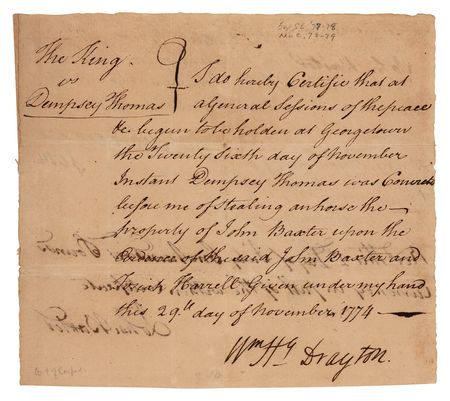 The King.
vs
Dempsey Thomas
I do hereby Certifie that at
a General Sessions of the peace
be begun to be holden at Georgetown
the Twenty Sixth day of November
Instant Dempsey Thomas was Convicted
before me of Stealing an horse the
property of John Baxter upon the
of the said John Baxter and
Harrell Given under my hand
this 29th day of November 1774
Wm Hy Drayton.